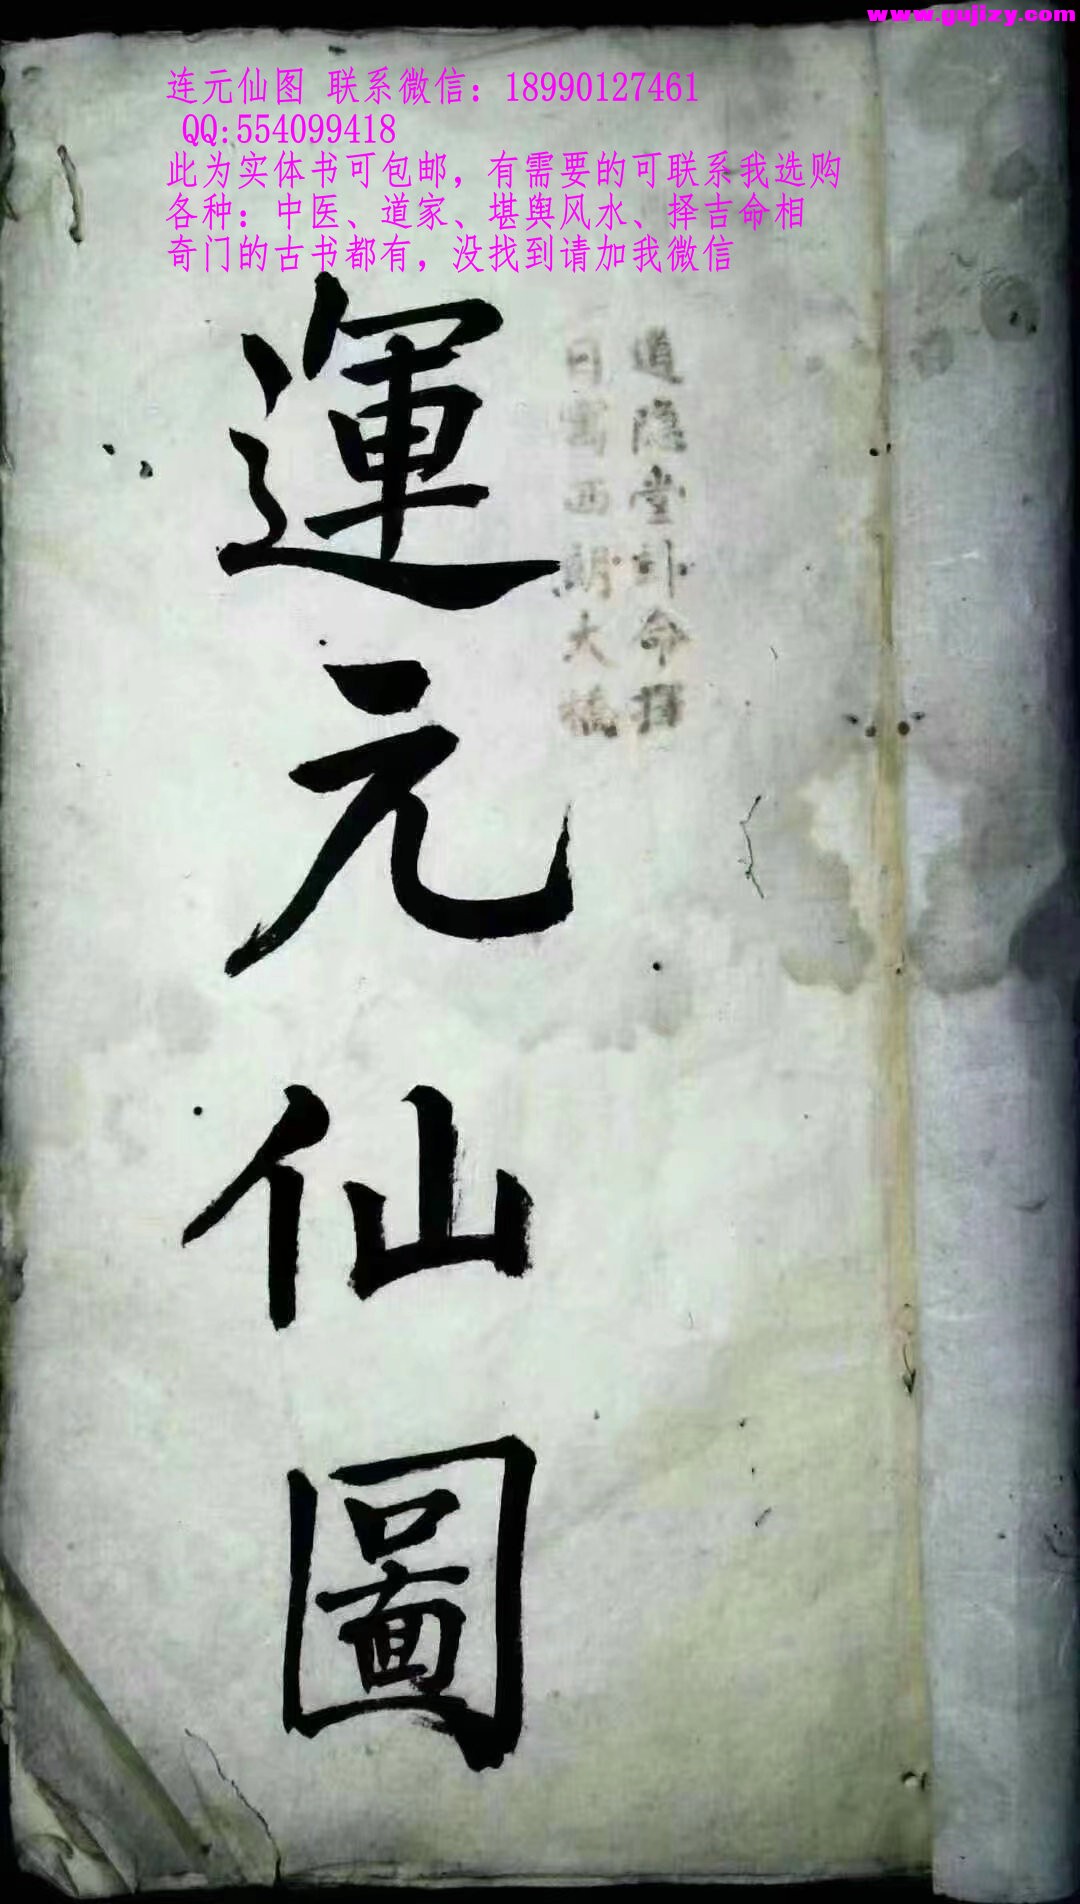 www.gujizy.com
连元仙图 联系微信：18990127461
QQ:554099418
此为实体书可包邮，有需要的可联系我选购
各种：中医、道家、堪舆风水、择吉命相
奇门的古书都有，没找到请加我微信
道隐堂卦命择
日寓西 大
運元仙圖